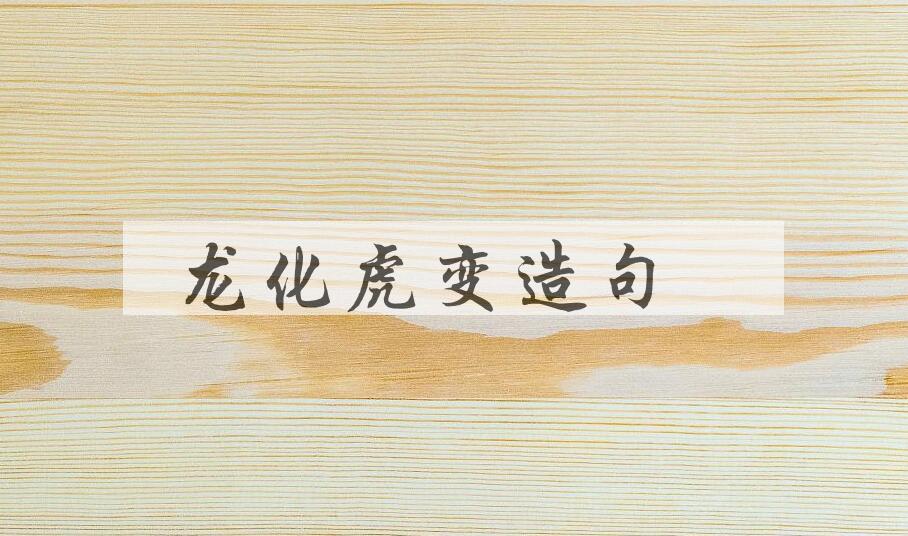 龙化虎变造句